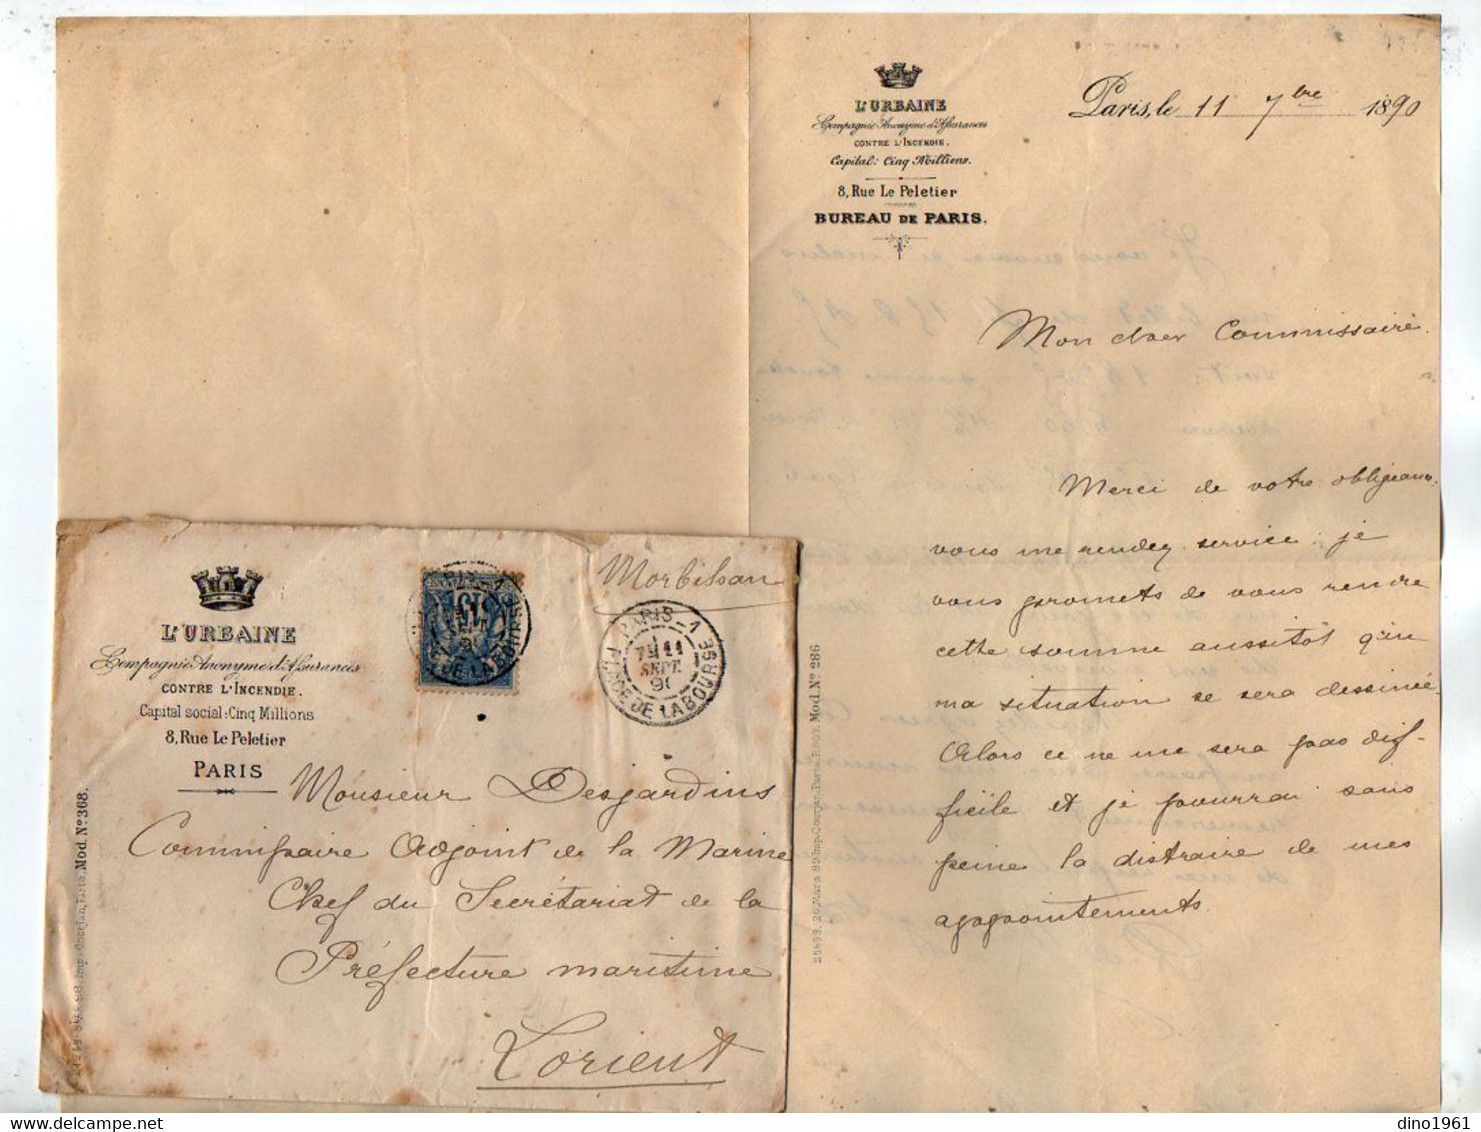 L'URBAINE
Compagnie Anonyme d'Assurances
CONTRE L'INCENDIE.
Capital: Cinq Millions.
8, Rue Le Peletier
BUREAU DE PARIS.
Paris, le 11 7bre 1890
Mon cher Commissaire.
Merci de votre obligeance,
vous me rendez service: je
vous promets de vous rendre
cette somme aussitôt qu'en
ma situation se sera dessinée.
Alors ce ne me sera pas dif-
ficile et je pourrai sans
peine la distraire de mes
appointements.
Mod. Nº 286
L'URBAINE
Compagnie Anonyme d'Assurances
CONTRE L'INCENDIE.
Capital social: Cinq Millions
8, Rue Le Peletier
PARIS
Mod. Nº 368.
Morbihan
PARIS-1
11
SEPT
PLACE DE LA BOURSE
Monsieur Desjardins
Commissaire Adjoint de la Marine
Chef du Secrétariat de la
Préfecture maritime
Lorient
dino1961